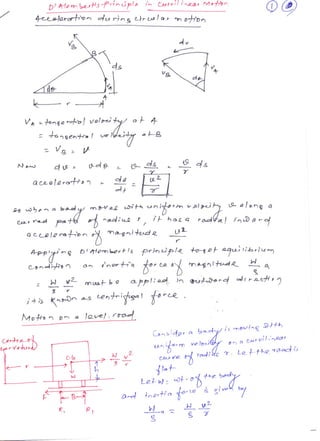 D'Alemberts Principle in Curvilinear Motion
①
Acceleration during circular motion
dv
VB
B
ds
VB
VA
dθ
VA
dθ
A
r
VA = tangential velocity at A
= tangential velocity at B
= VB = V
Now dv = vdθ = v ds/r = v/r ds
acceleration = dv/dt = v²/r
So when a body moves with uniform velocity v along a
curved path of radius r, it has a radial inward
acceleration of magnitude v²/r
Applying D'Alemberts principle to get equilibrium
condition an inertia force of magnitude W/g a
= W/g v²/r must be applied in outward direction
it is known as centrifugal force.
Motion on a level road
Consider a body is moving with
uniform velocity on a curvilinear
curve of radius r. Let the road is
flat
Let W = wt. of the body
and inertia force is given by
W/g a = W/g v²/r
Center of
CG
W/g v²/r
r
h
W
F
B
R₁
R₂